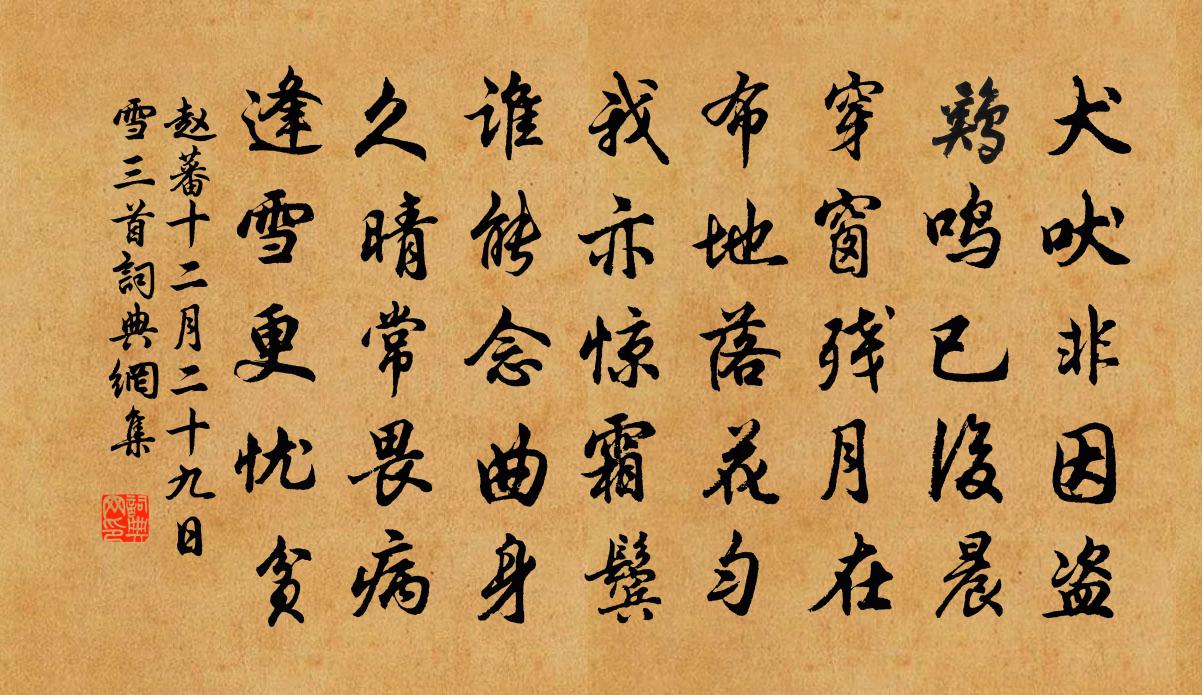 犬吠非因盗
鷄鸣已後晨
穿窗残月在
布地落花匀
我亦惊霜鬓
谁能念曲身
久晴常畏病
逢雪更忧贫
赵蕃十二月二十九日
雪三首詞典網集
詞典
网印